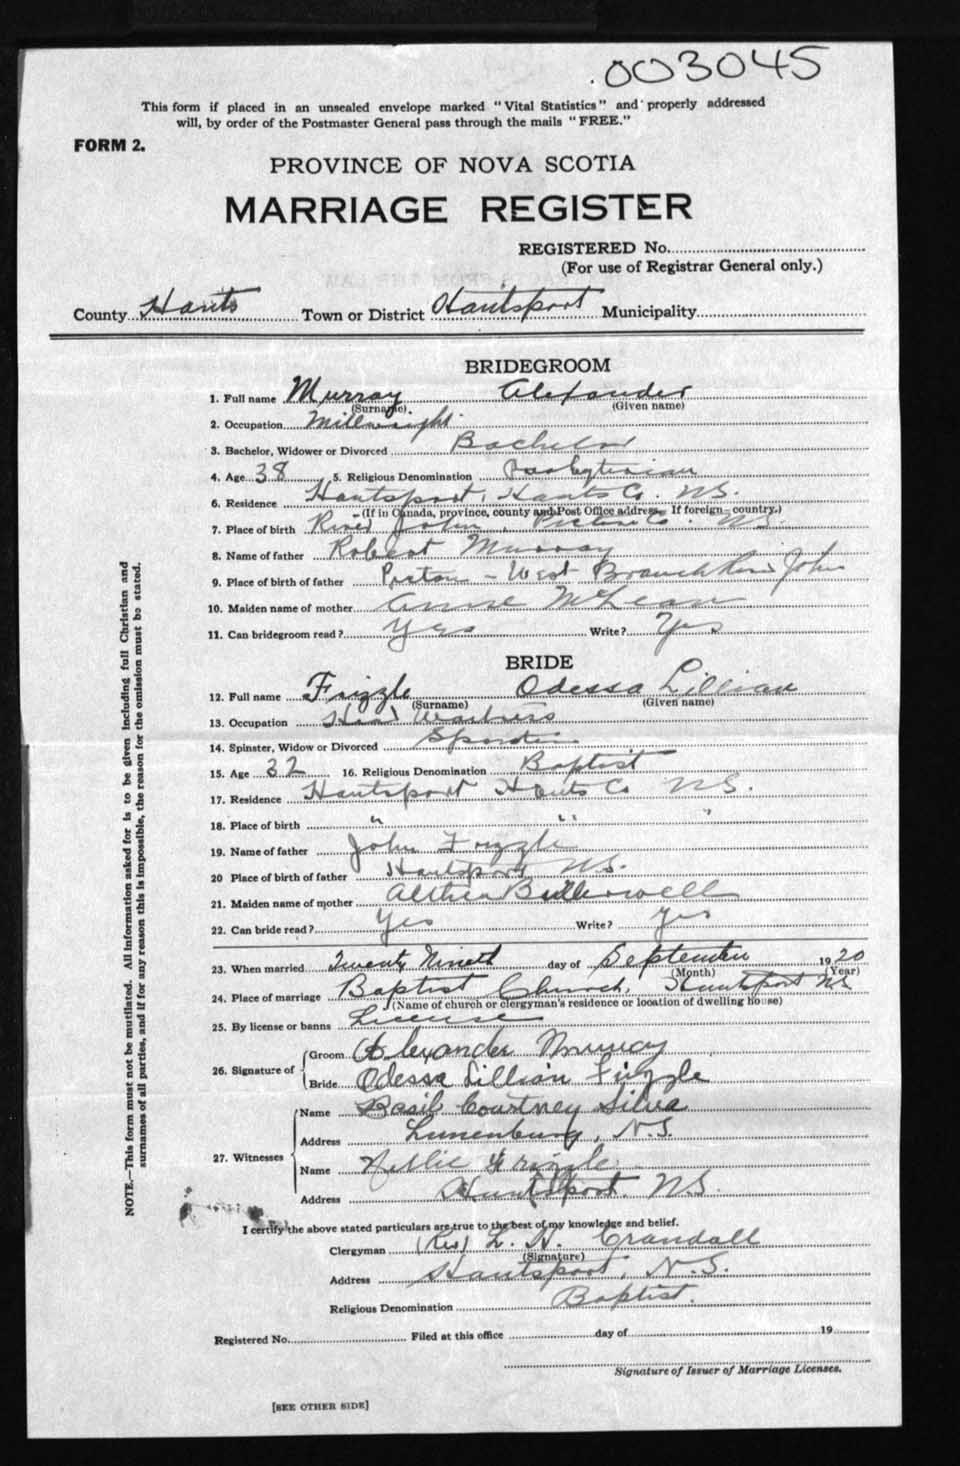 003045
This form if placed in an unsealed envelope marked "Vital Statistics" and properly addressed
will, by order of the Postmaster General pass through the mails "FREE."
FORM 2.
PROVINCE OF NOVA SCOTIA
MARRIAGE REGISTER
REGISTERED No.
(For use of Registrar General only.)
County Hants Town or District Hantsport Municipality
BRIDEGROOM
1. Full name Murray Alexander
(Surname). (Given name)
2. Occupation Millwright
3. Bachelor, Widower or Divorced Bachelor
4. Age 38 5. Religious Denomination Presbyterian
6. Residence Hantsport, Hants Co. N.S.
(If in Canada, province, county and Post Office address. If foreign country.)
7. Place of birth River John, Pictou Co. N.S.
8. Name of father Robert Murray
9. Place of birth of father Pictou - West Branch River John
10. Maiden name of mother Annie McLean
11. Can bridegroom read? Yes Write? Yes
BRIDE
12. Full name Frizzle Odessa Lillian
(Surname) (Given name)
13. Occupation Head Waitress
14. Spinster, Widow or Divorced Spinster
15. Age 32 16. Religious Denomination Baptist
17. Residence Hantsport Hants Co N.S.
18. Place of birth " " "
19. Name of father John Frizzle
20 Place of birth of father Hantsport N.S.
21. Maiden name of mother Althea
22. Can bride read? Yes Write? Yes
23. When married Twenty Nineth day of September 1920
(Month) (Year)
24. Place of marriage Baptist Church, Hantsport N.S.
(Name of church or clergyman's residence or location of dwelling house)
25. By license or banns License
26. Signature of Groom Alexander Murray
Bride Odessa Lillian Frizzle
27. Witnesses Name Basil Courtney Silva
Address Lunenburg, N.S.
Name Nellie Frizzle
Address Hantsport. N.S.
I certify the above stated particulars are true to the best of my knowledge and belief.
Clergyman (Rev) L. H. Crandall
(Signature)
Address Hantsport, N.S.
Religious Denomination Baptist.
Registered No. Filed at this office day of 19
Signature of Issuer of Marriage Licenses.
[SEE OTHER SIDE]
NOTE.—This form must not be mutilated. All information asked for is to be given including full Christian and
surnames of all parties, and if for any reason this is impossible, the reason for the omission must be stated.